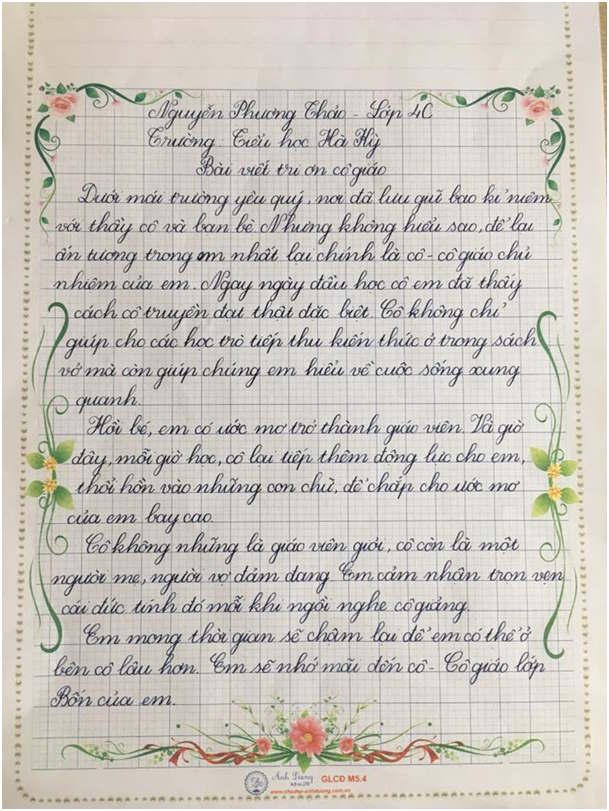 Nguyễn Phương Thảo - Lớp 4C
Trường: Tiểu học Hà Kỳ
Bài viết tri ơn cô giáo
Dưới mái trường yêu quý, nơi đã lưu giữ bao kỉ niệm
với thầy cô và bạn bè. Nhưng không hiểu sao, để lại
ấn tượng trong em nhất lại chính là cô - cô giáo chủ
nhiệm của em. Ngay ngày đầu học cô em đã thấy
cách cô truyền đạt thật đặc biệt. Cô không chỉ
giúp cho các học trò tiếp thu kiến thức ở trong sách
vở mà còn giúp chúng em hiểu về cuộc sống xung
quanh.
Hồi bé, em có ước mơ trở thành giáo viên. Và giờ
đây, mỗi giờ học, cô lại tiếp thêm động lực cho em,
thổi hồn vào những con chữ, để chắp cho ước mơ
của em bay cao.
Cô không những là giáo viên giỏi, cô còn là một
người mẹ, người vợ đảm đang. Em cảm nhận trọn vẹn
cái đức tính đó mỗi khi ngồi nghe cô giảng.
Em mong thời gian sẽ chậm lại để em có thể ở
bên cô lâu hơn. Em sẽ nhớ mãi đến cô - Cô giáo lớp
Bốn của em.
Anh Dương
GLCĐ M5.4